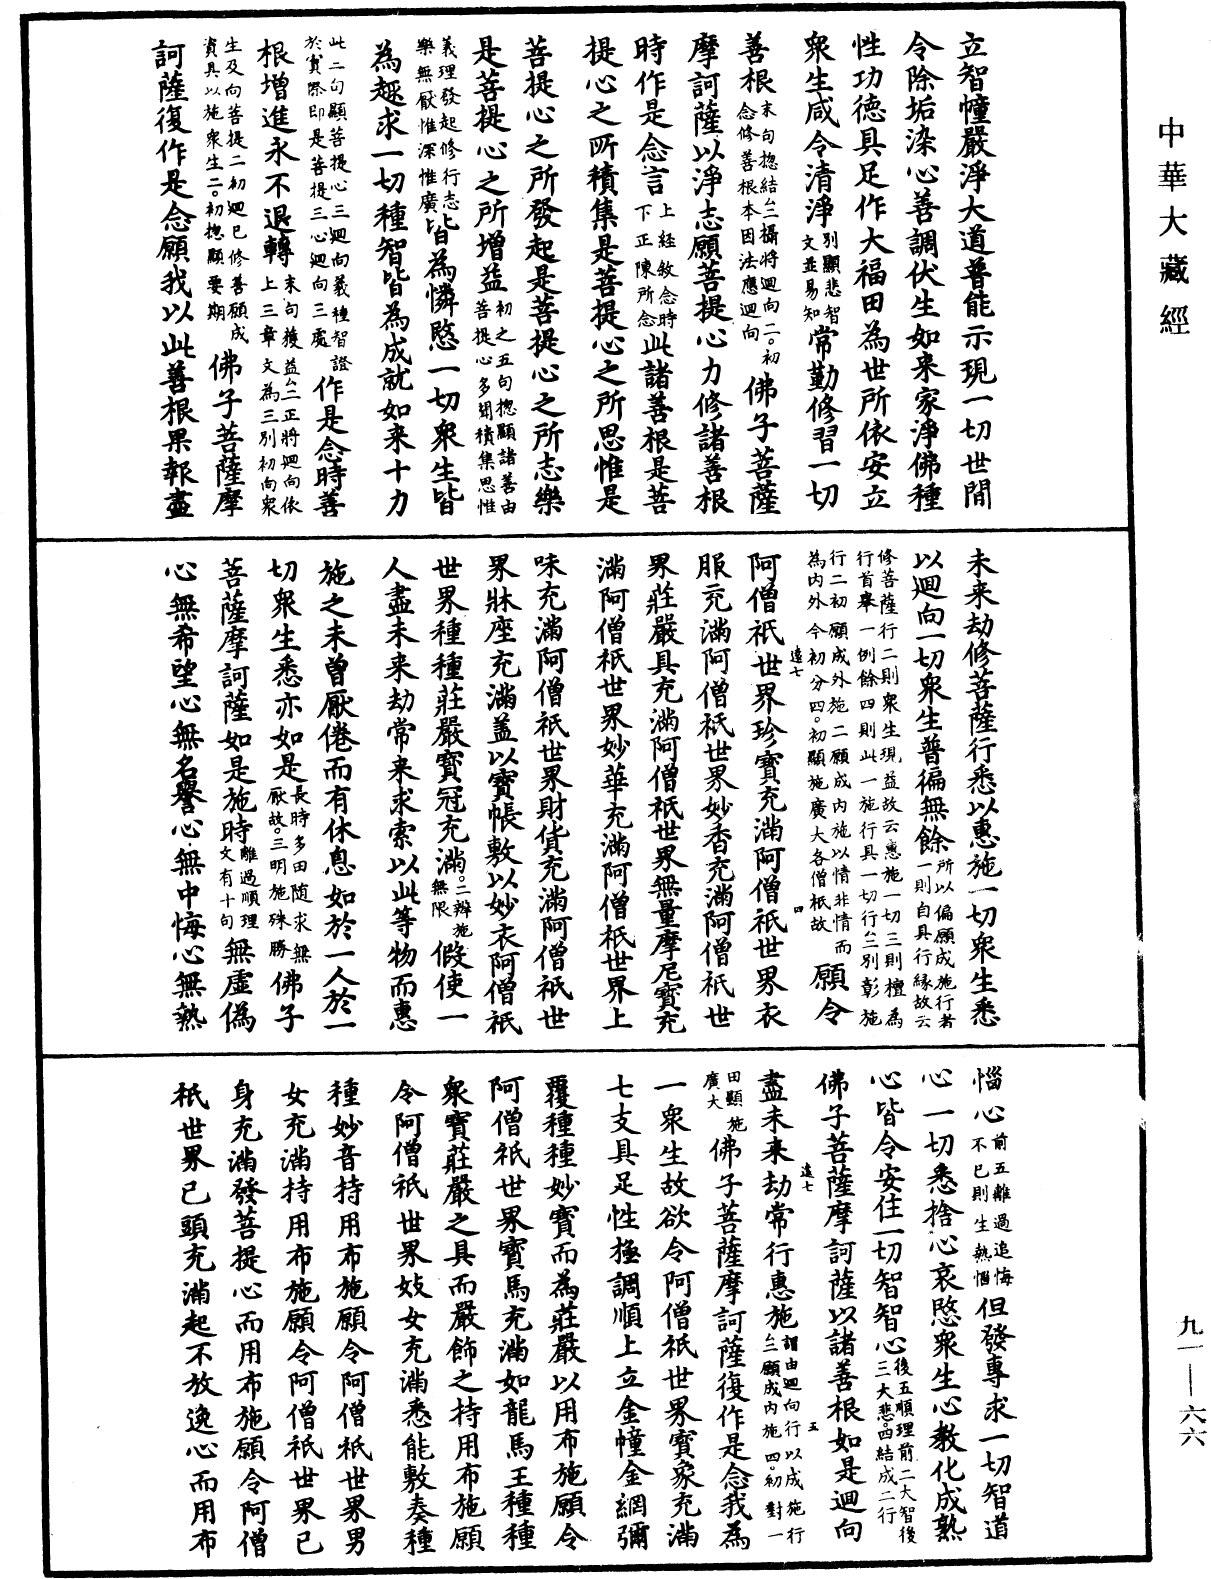 中華大藏經
立智幢嚴淨大道普能示現一切世間
令除垢染心善調伏生如来家淨佛種
性功德具足作大福田為世所依安立
衆生咸令清淨別顯悲智文並易知常勤修習一切
善根末句揔結㠯攝將迴向二。初念修善根本因法應迴向佛子菩薩
摩訶薩以淨志願菩提心力修諸善根
時作是念言上經敘念時下正陳所念此諸善根是菩
提心之所積集是菩提心之所思惟是
菩提心之所發起是菩提心之所志樂
是菩提心之所增益初之五句揔顯諸善由菩提心多聞積集思惟
義理發起修行志樂無厭惟深惟廣皆為憐愍一切衆生皆
為趣求一切種智皆為成就如来十力
此二句顯菩提心三迴向義種智證於實際即是菩提三心迴向三處作是念時善
根增進永不退轉末句獲益㠯正將迴向依上三章文為三別初向衆
生及向菩提二初迴已修善願成資具以施衆生二。初揔顯要期佛子菩薩摩
訶薩復作是念願我以此善根果報盡
未来劫修菩薩行悉以惠施一切衆生悉
以迴向一切衆生普徧無餘所以偏願成施行者一則自具行緣故云
修菩薩行二則衆生現益故云惠施一切三則檀為行首舉一例餘四則此一施行具一切行㠯別彰施
行二初願成外施二願成内施以情非情而為内外今初分四。初顯施廣大各僧祇故願令
阿僧祇世界珍寶充滿阿僧祇世界衣
服充滿阿僧祇世界妙香充滿阿僧祇世
界莊嚴具充滿阿僧祇世界無量摩尼寶充
滿阿僧祇世界妙華充滿阿僧祇世界上
味充滿阿僧祇世界財貨充滿阿僧祇世
界牀座充滿蓋以寶帳敷以妙衣阿僧祇
世界種種莊嚴寶冠充滿。二辨施無限假使一
人盡未来劫常来求索以此等物而惠
施之未曾厭倦而有休息如於一人於一
切衆生悉亦如是長時多田隨求無厭故。三明施殊勝佛子
菩薩摩訶薩如是施時離過順理文有十句無虛偽
心無希望心無名譽心無中悔心無熱
惱心前五離過追悔不已則生熱惱但發專求一切智道
心一切悉捨心哀愍衆生心教化成熟
心皆令安住一切智智心後五順理前二大智後三大悲。四結成二行
佛子菩薩摩訶薩以諸善根如是迴向
盡未来劫常行惠施謂由迴向行以成施行㠯願成内施四。初對一
田顯施廣大佛子菩薩摩訶薩復作是念我為
一衆生故欲令阿僧祇世界寶象充滿
七支具足性極調順上立金幢金網彌
覆種種妙寶而為莊嚴以用布施願令
阿僧祇世界寶馬充滿如龍馬王種種
衆寶莊嚴之具而嚴飾之持用布施願
令阿僧祇世界妓女充滿悉能敷奏種
種妙音持用布施願令阿僧祇世界男
女充滿持用布施願令阿僧祇世界已
身充滿發菩提心而用布施願令阿僧
祇世界已頭充滿起不放逸心而用布
遠七
四
遠七
五
九一—六六